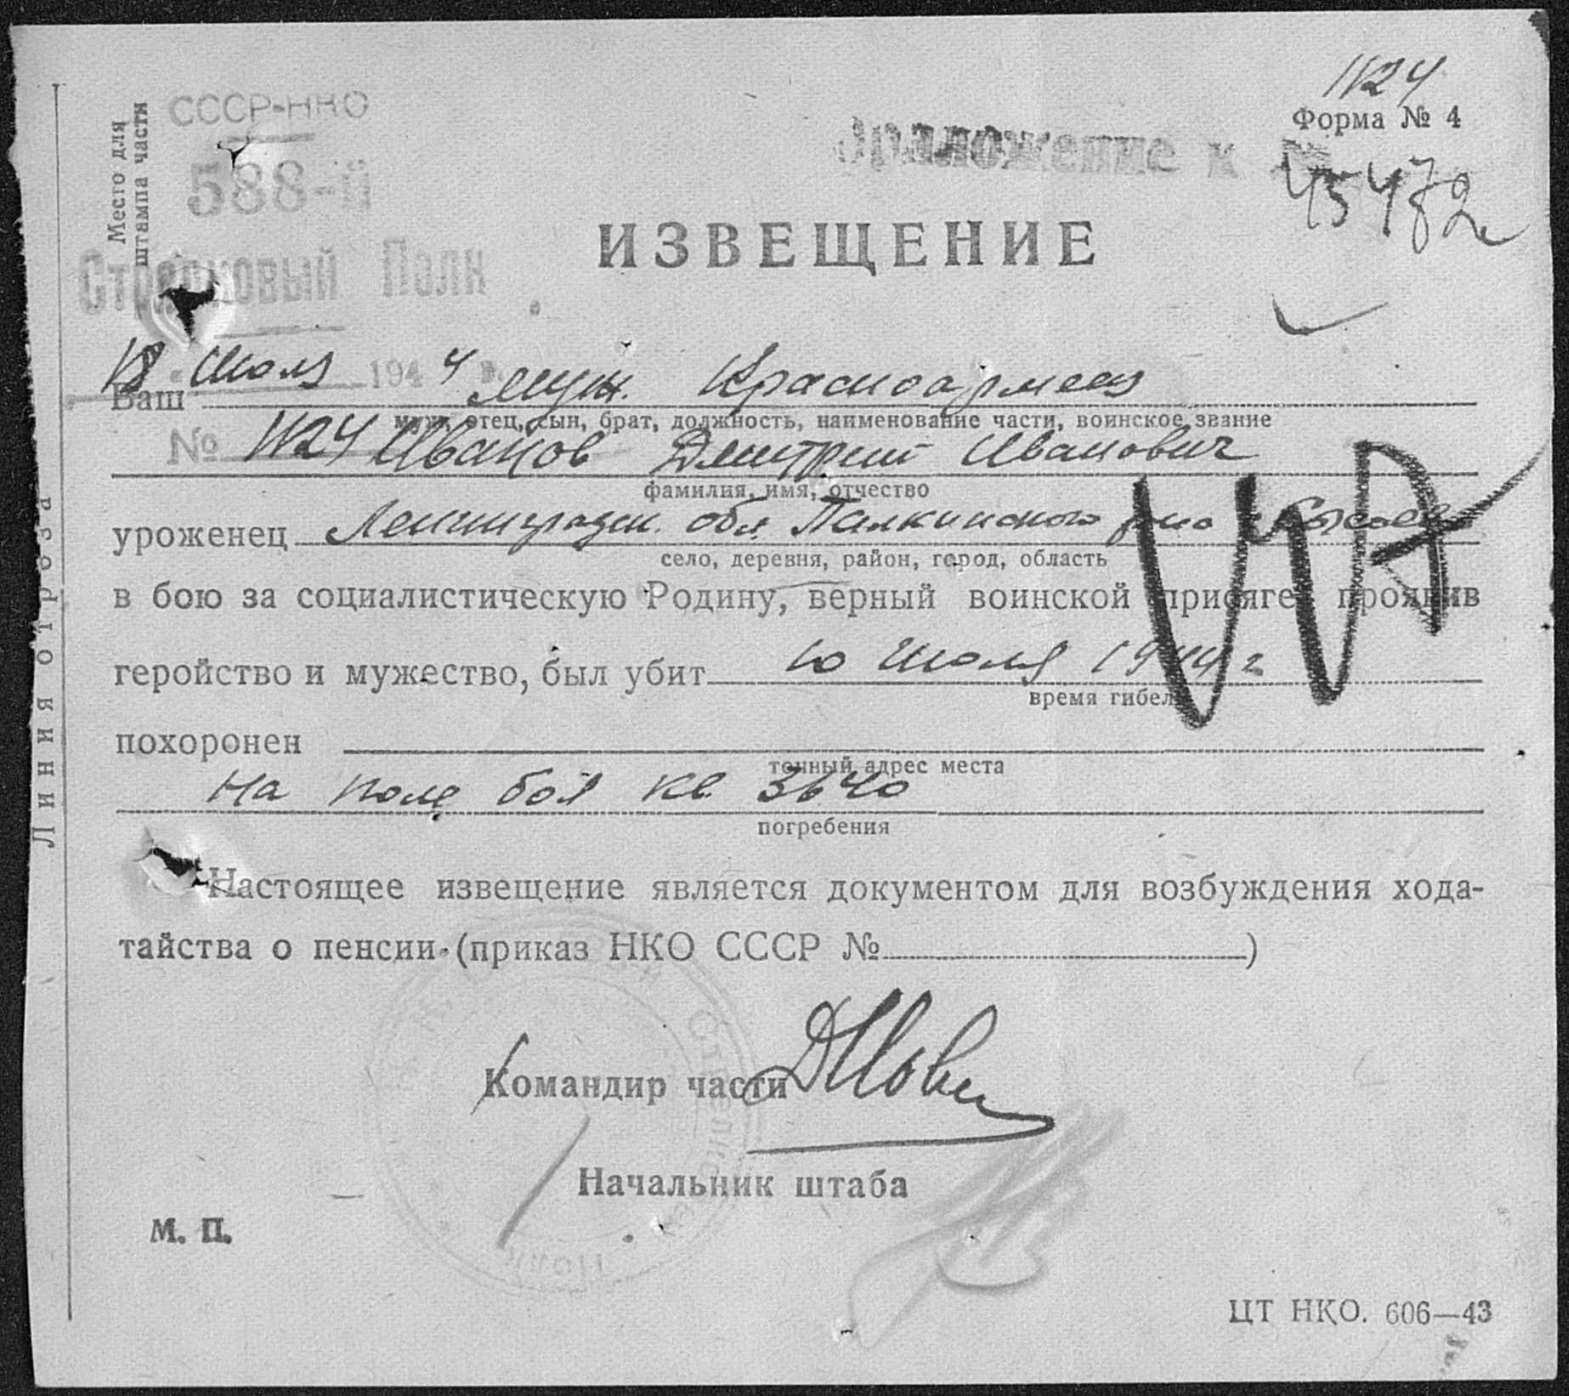 1124
Форма № 4
Место для
штампа части
СССР-НКО
588-й
Стрелковый Полк
Приложение к №
45472
ИЗВЕЩЕНИЕ
Июля 1944 г.
Ваш муж. Красноармеец
муж, отец, сын, брат, должность, наименование части, воинское звание
№ 1124
Иванов Дмитрий Иванович
фамилия, имя, отчество
уроженец Ленинградск. обл. Палкинского р-на
село, деревня, район, город, область
в бою за социалистическую Родину, верный воинской присяге, проявив
геройство и мужество, был убит 10 Июля 1944 г
время гибели
похоронен
точный адрес места
На поле боя кв. 3640
погребения
Настоящее извещение является документом для возбуждения хода-
тайства о пенсии (приказ НКО СССР № )
Командир части
Начальник штаба
М. П.
ЦТ НКО. 606—43
Линия отреза